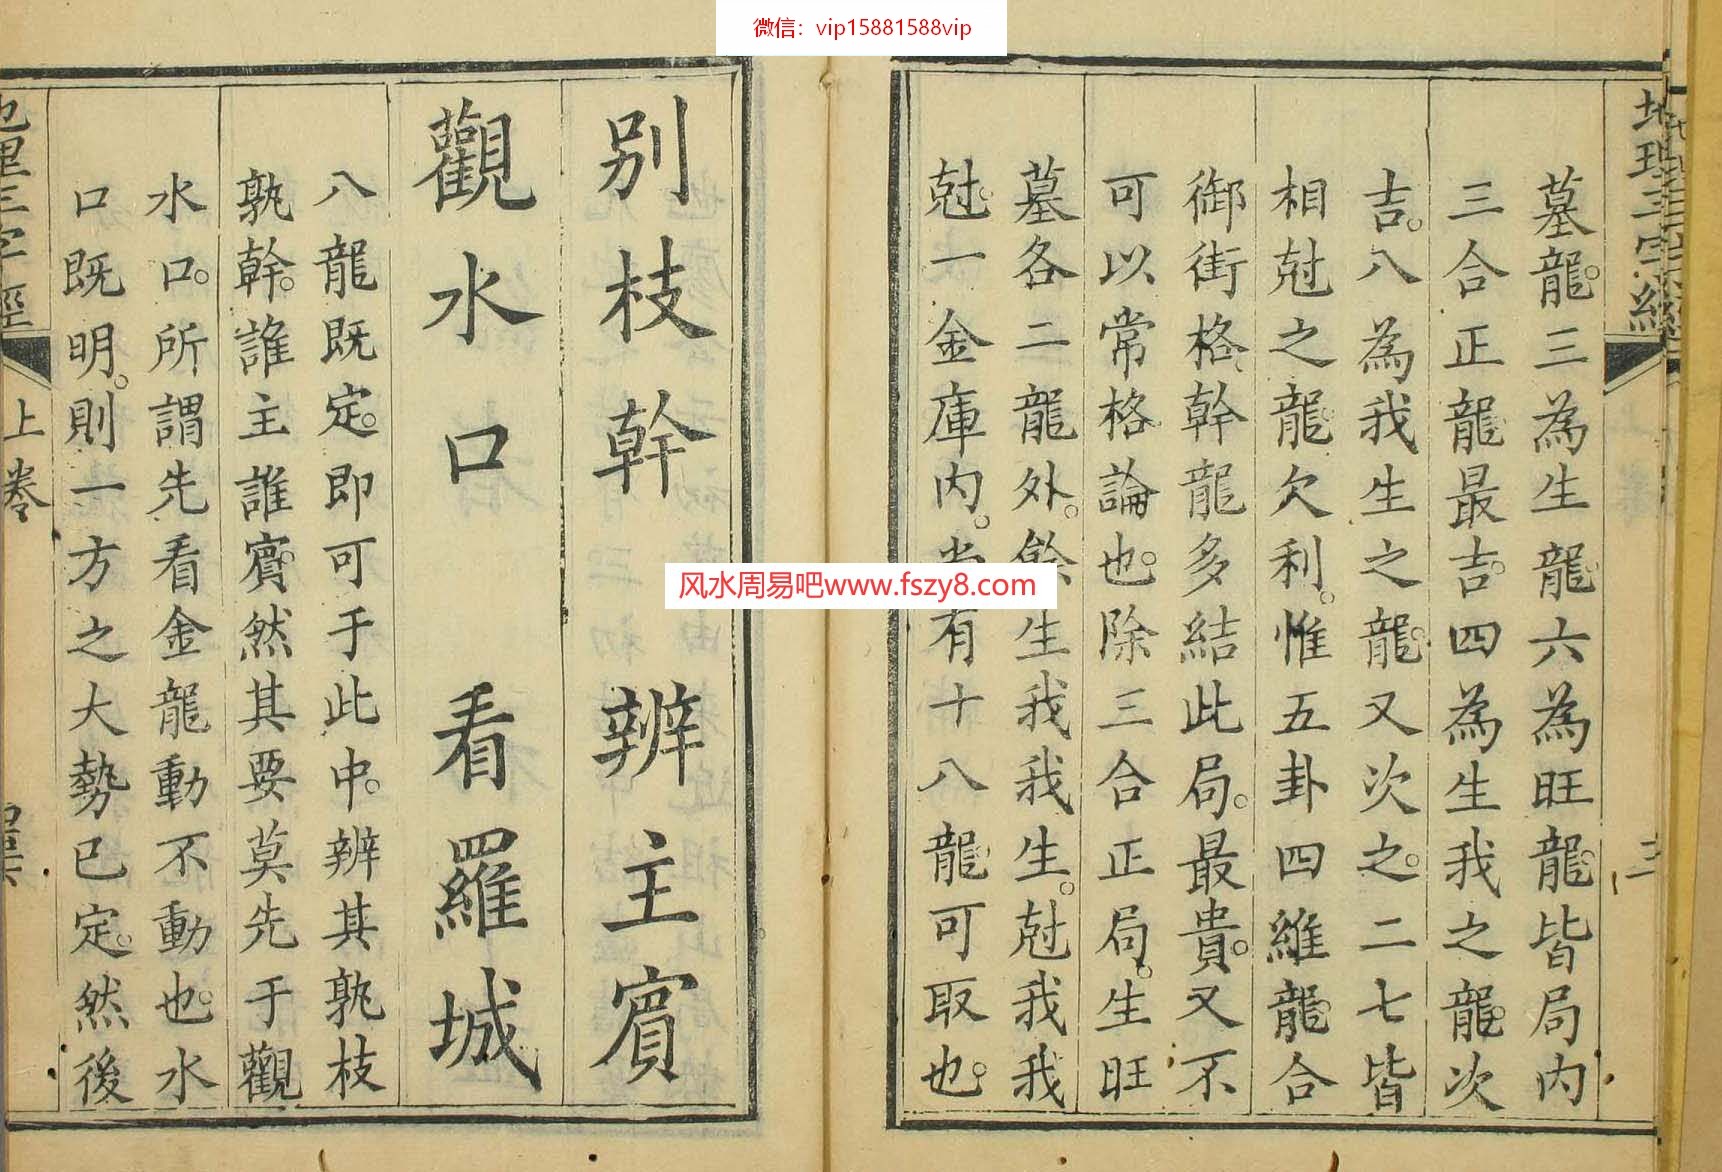 微信：vip15881588vip
地理三字經
三
墓龍。三為生龍六為旺龍。皆局內
三合正龍最吉。四為生我之龍。次
吉。八為我生之龍。又次之。二七皆
相尅之龍。欠利。惟五卦四維龍。合
御街格。幹龍多結此局。最貴。又不
可以常格論也。除三合正局。生旺
墓各二龍外。餘生我我生。尅我我
尅。一金庫內。有十八龍。可取也。
风水周易吧www.fszy8.com
別枝幹 辨主賓
觀水口 看羅城
八龍既定。即可于此中。辨其孰枝
孰幹。誰主誰賓。然其要莫先于觀
水口。所謂先看金龍動不動也。水
口既明。則一方之大勢已定。然後
地理三字經
上卷